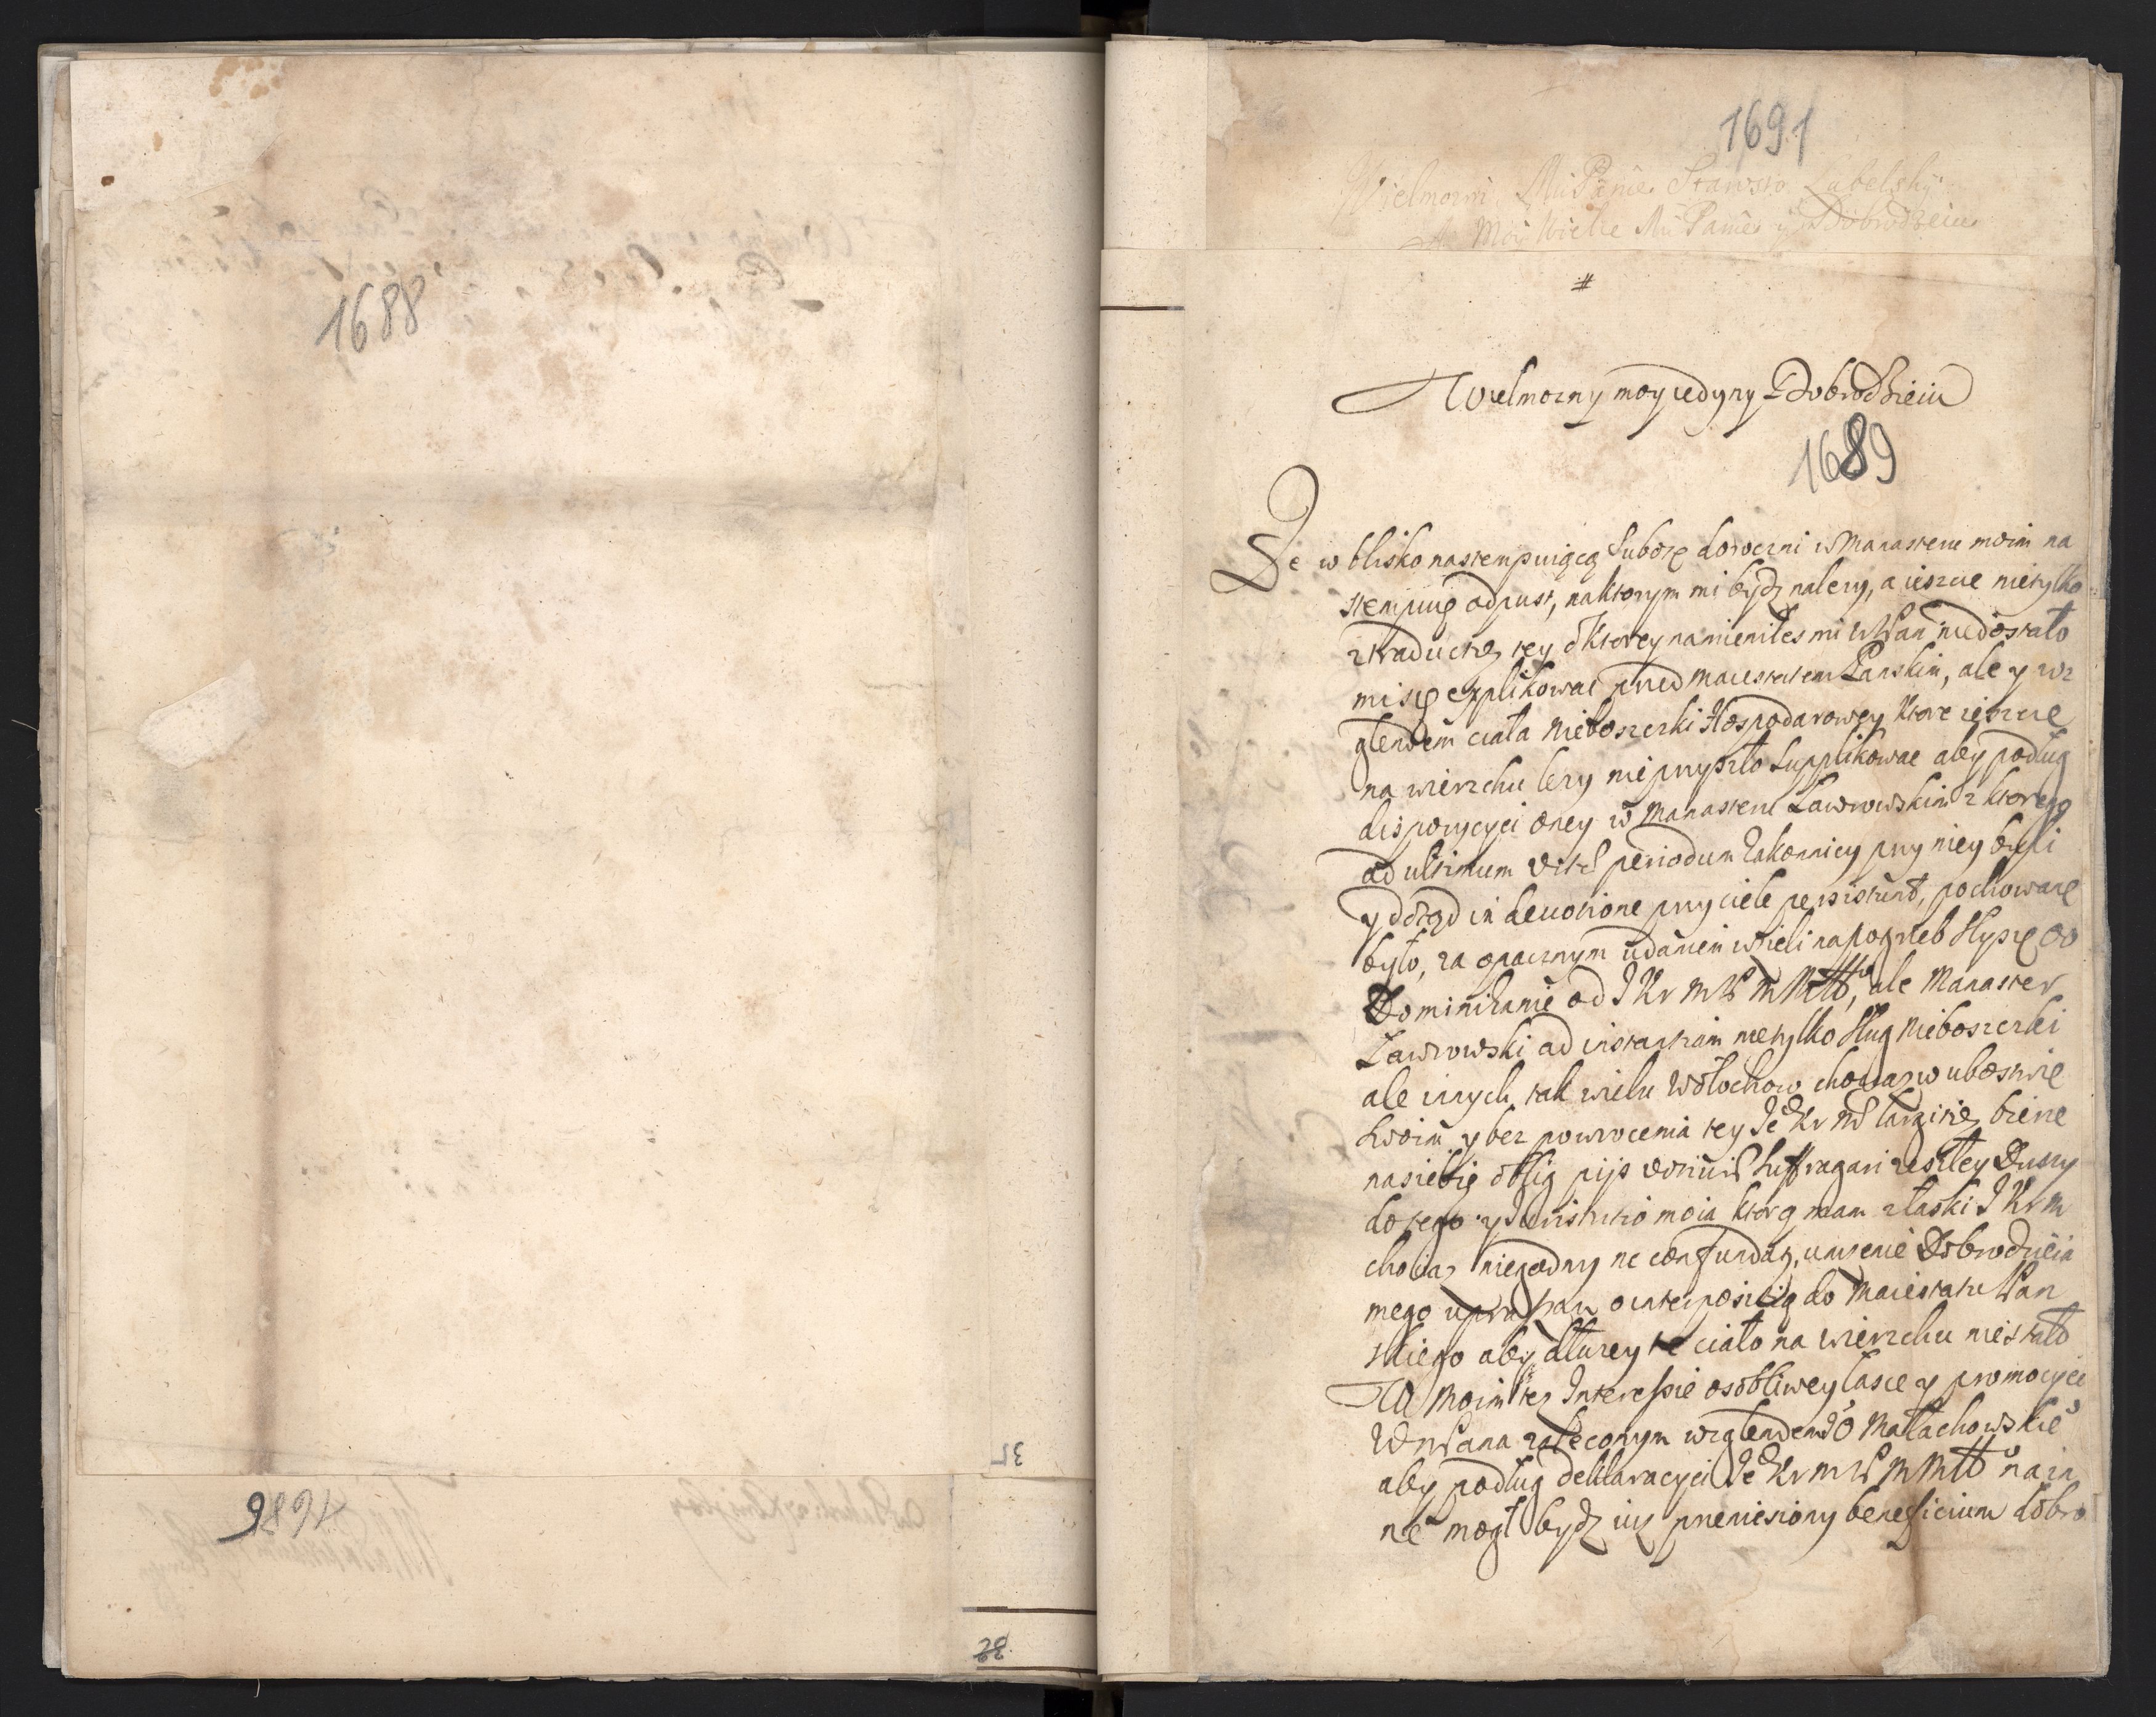 1688
1686
32
28
1691
Wielmozni Mći Panie Starosto Lubelsky
Moy Wielce Mći Panie y Dobrodzieiu
#
Wielmozny moy iedyny Dobrodzieiu
1689
Ze w blisko nastempuiącą Subotę doroczni w Manasteru moim na
stempuie odpust, na ktorym mi bydz nalezy, a ieszcze nie tylko
tey o ktorey namieniłes mi WPan niedostało
mi się explikowac przed Maiestatem Panskim, ale y wz
glendem ciała Nieboszczki Hospodarowey ktore ieszcze
na wierzchu lezy nie przyszło supplikowac aby podług
dispozycyi oney w Manasteru Ławrowskim z ktorego
ad ultimum vitæ periodum Zakonnicy przy niey byli
y dotąd in devotione przy ciele persistunt, pochowane
było, za opacznym udaniem wzieli na pogrzeb słyszę OO
Dominikanie od J Kr M P M Mtt, ale Manaster
Ławrowski ad instantiam nie tylko sług Nieboszczki
ale innych tak wielu Wołochow chociaz w ubostwie
swoim y bez powrocenia tey Je Kr Mć bierze
na siebie oblig pijs suffragari zeszłey Duszy
do tego y moia ktorą mam z łaski J Kr M
chociaz niegodny ne confundat, unizenie Dobrodzieia
mego upraszam o interpositią do Maiestatu Pan
skiego aby dłuzey te ciało na wierzchu nie stało
W moim tez Interessie osobliwey łasce y promocyi
WMPana zaleconym wzglendem O Małachowskie
aby podług deklaracyi Je Kr M P M Mtt na in
ne mogł bydz iuz przeniesiony beneficium dobro